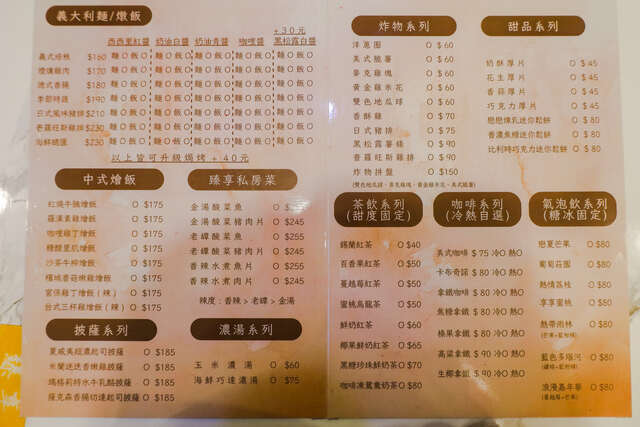 義大利麵/燉飯
+30元
西西里紅醬 奶油白醬 奶油青醬 咖哩醬 黑松露白醬
義式培根 $160 麵O飯O 麵O飯O 麵O飯O 麵O飯O 麵O飯O
煙燻雞肉 $170 麵O飯O 麵O飯O 麵O飯O 麵O飯O 麵O飯O
德式香腸 $180 麵O飯O 麵O飯O 麵O飯O 麵O飯O 麵O飯O
季節時蔬 $190 麵O飯O 麵O飯O 麵O飯O 麵O飯O 麵O飯O
日式風味豬排 $210 麵O飯O 麵O飯O 麵O飯O 麵O飯O 麵O飯O
普羅旺斯雞排 $230 麵O飯O 麵O飯O 麵O飯O 麵O飯O 麵O飯O
海鮮總匯 $230 麵O飯O 麵O飯O 麵O飯O 麵O飯O 麵O飯O
以上皆可升級焗烤 + 40元
中式燴飯
紅燒牛腩燴飯 O $175
羅漢素雞燴飯 O $175
咖哩雞丁燴飯 O $175
糖醋里肌燴飯 O $175
沙茶牛柳燴飯 O $175
檳城香菇嫩雞燴飯 O $175
宮保雞丁燴飯(辣) O $175
台式三杯雞燴飯 O $175
臻享私房菜
金湯酸菜魚 O
金湯酸菜豬肉片 O $245
老罈酸菜魚 O $255
老罈酸菜豬肉片 O $245
香辣水煮魚片 O $255
香辣水煮肉片 O $245
辣度:香辣>老罈>金湯
披薩系列
夏威夷經濃起司披薩 O $185
米蘭迷迭香嫩雞披薩 O $185
瑪格莉特水牛乳酪披薩 O $185
薩克森香腸切達起司披薩 O $185
濃湯系列
玉米濃湯 O $60
海鮮巧達濃湯 O $75
炸物系列
洋蔥圈 O $60
美式脆薯 O $60
麥克雞塊 O $60
黃金雞米花 O $60
雙色地瓜球 O $60
香酥雞 O $70
日式豬排 O $75
黑松露薯條 O $90
普羅旺斯雞排 O $90
炸物拼盤 O $150
(雙色地瓜球、麥克雞塊、黃金雞米花、美式脆薯)
甜品系列
奶酥厚片 O $45
花生厚片 O $45
香蒜厚片 O $45
巧克力厚片 O $45
戀戀煉乳迷你鬆餅 O $60
香濃蕉糖迷你鬆餅 O $60
比利時巧克力迷你鬆餅 O $60
茶飲系列
(甜度固定)
錫蘭紅茶 O $40
百香果紅茶 O $50
蔓越莓紅茶 O $50
蜜桃烏龍茶 O $50
鮮奶紅茶 O $60
椰果鮮奶紅茶 O $65
黑糖珍珠鮮奶茶 O $70
咖啡凍鴛鴦奶茶 O $80
咖啡系列
(冷熱自選)
美式咖啡 $75 冷O 熱O
卡布奇諾 $80 冷O 熱O
拿鐵咖啡 $80 冷O 熱O
焦糖拿鐵 $90 冷O 熱O
榛果拿鐵 $90 冷O 熱O
高粱拿鐵 $90 冷O 熱O
生椰拿鐵 $90 冷O 熱O
氣泡飲系列
(糖冰固定)
戀夏芒果 O $80
葡萄莊園 O $80
熱情荔枝 O $80
享享蜜桃 O $80
熱帶雨林 O $80
藍色多瑙河 O $80
浪漫嘉年華 O $80
(蔓越莓+芒果)